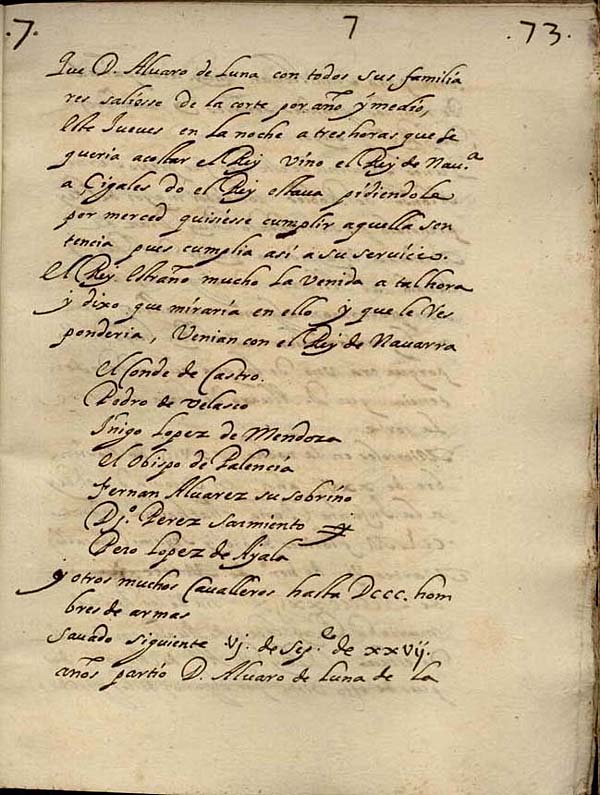 .7. 7 .73.
Que D. Alvaro de Luna con todos sus familia
res saliesse de la corte por año y medio,
Este Jueves en la noche a tres horas que se
queria acostar el Rey vino el Rey de Nau.ª
a Çigales do el Rey estaua pidiendola
por merced quisiesse cumplir aquella sen
tencia pues cumplia asi a su servicio.
El Rey estraño mucho la venida a tal hora
y dixo que miraria en ello y que le Res
ponderia, Venian con el Rey de Nauarra
El Conde de Castro.
Pedro de Velasco
Iñigo Lopez de Mendoza
El Obispo de Palencia
Fernan Alvarez su sobrino
D.º Perez Sarmiento
Pero Lopez de Ayala
y otros muchos Cavalleros hasta Dccc. hom
bres de armas
Savado siguiente vj. de Sep.re de xxvij.
años partio D. Alvaro de Luna de la